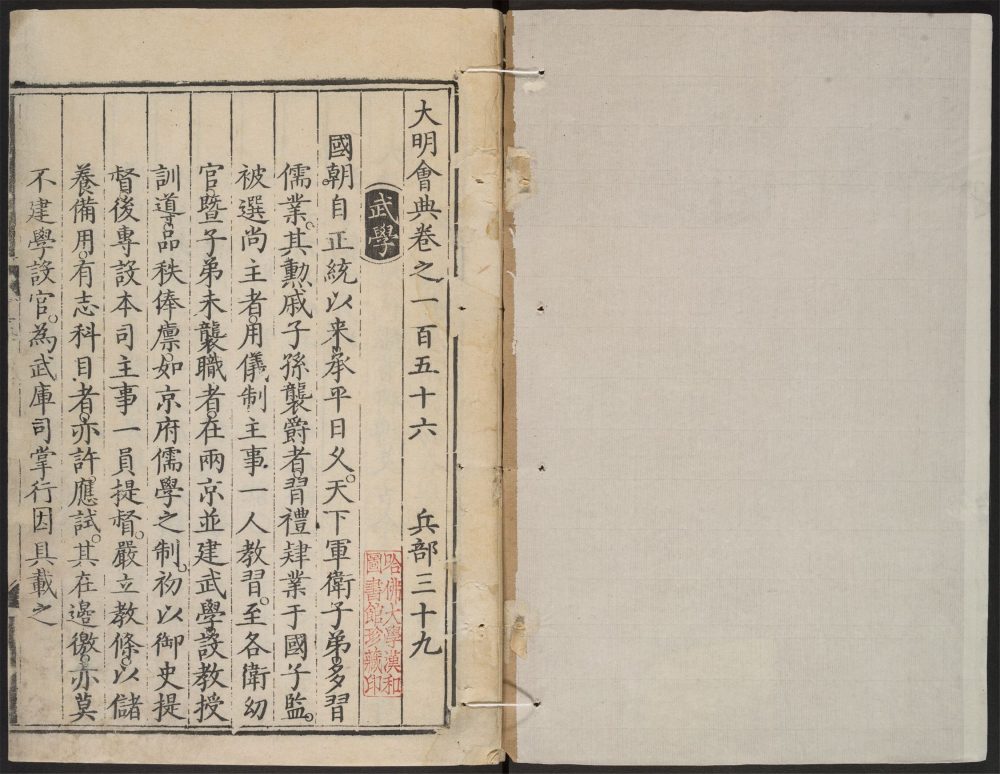 大明會典卷之一百五十六 兵部三十九
武學
國朝自正統以来。承平日久。天下軍衛子弟。多習
儒業。其勲戚子孫襲爵者。習禮肄業于國子監。
被選尚主者。用儀制主事一人教習。至各衛幼
官。暨子弟未襲職者。在兩京並建武學。設教授
訓導。品秩俸廪。如京府儒學之制。初以御史提
督。後專設本司主事一員提督。嚴立教條。以儲
養備用。有志科目者。亦許應試。其在邊徼。亦莫
不建學設官。為武庫司掌行因具載之
哈佛大學漢和
圖書館珍藏印